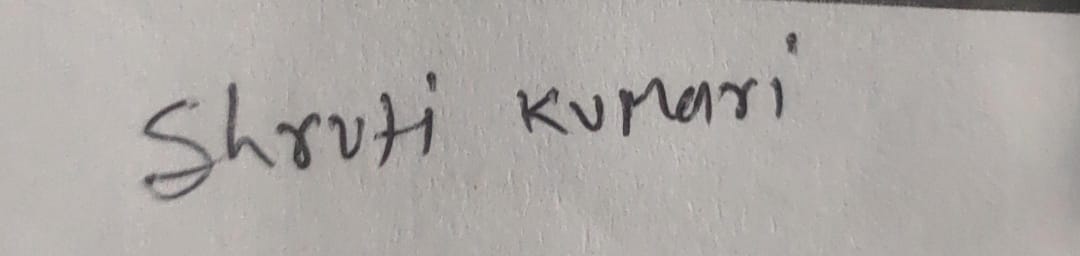 Shruti Kumari